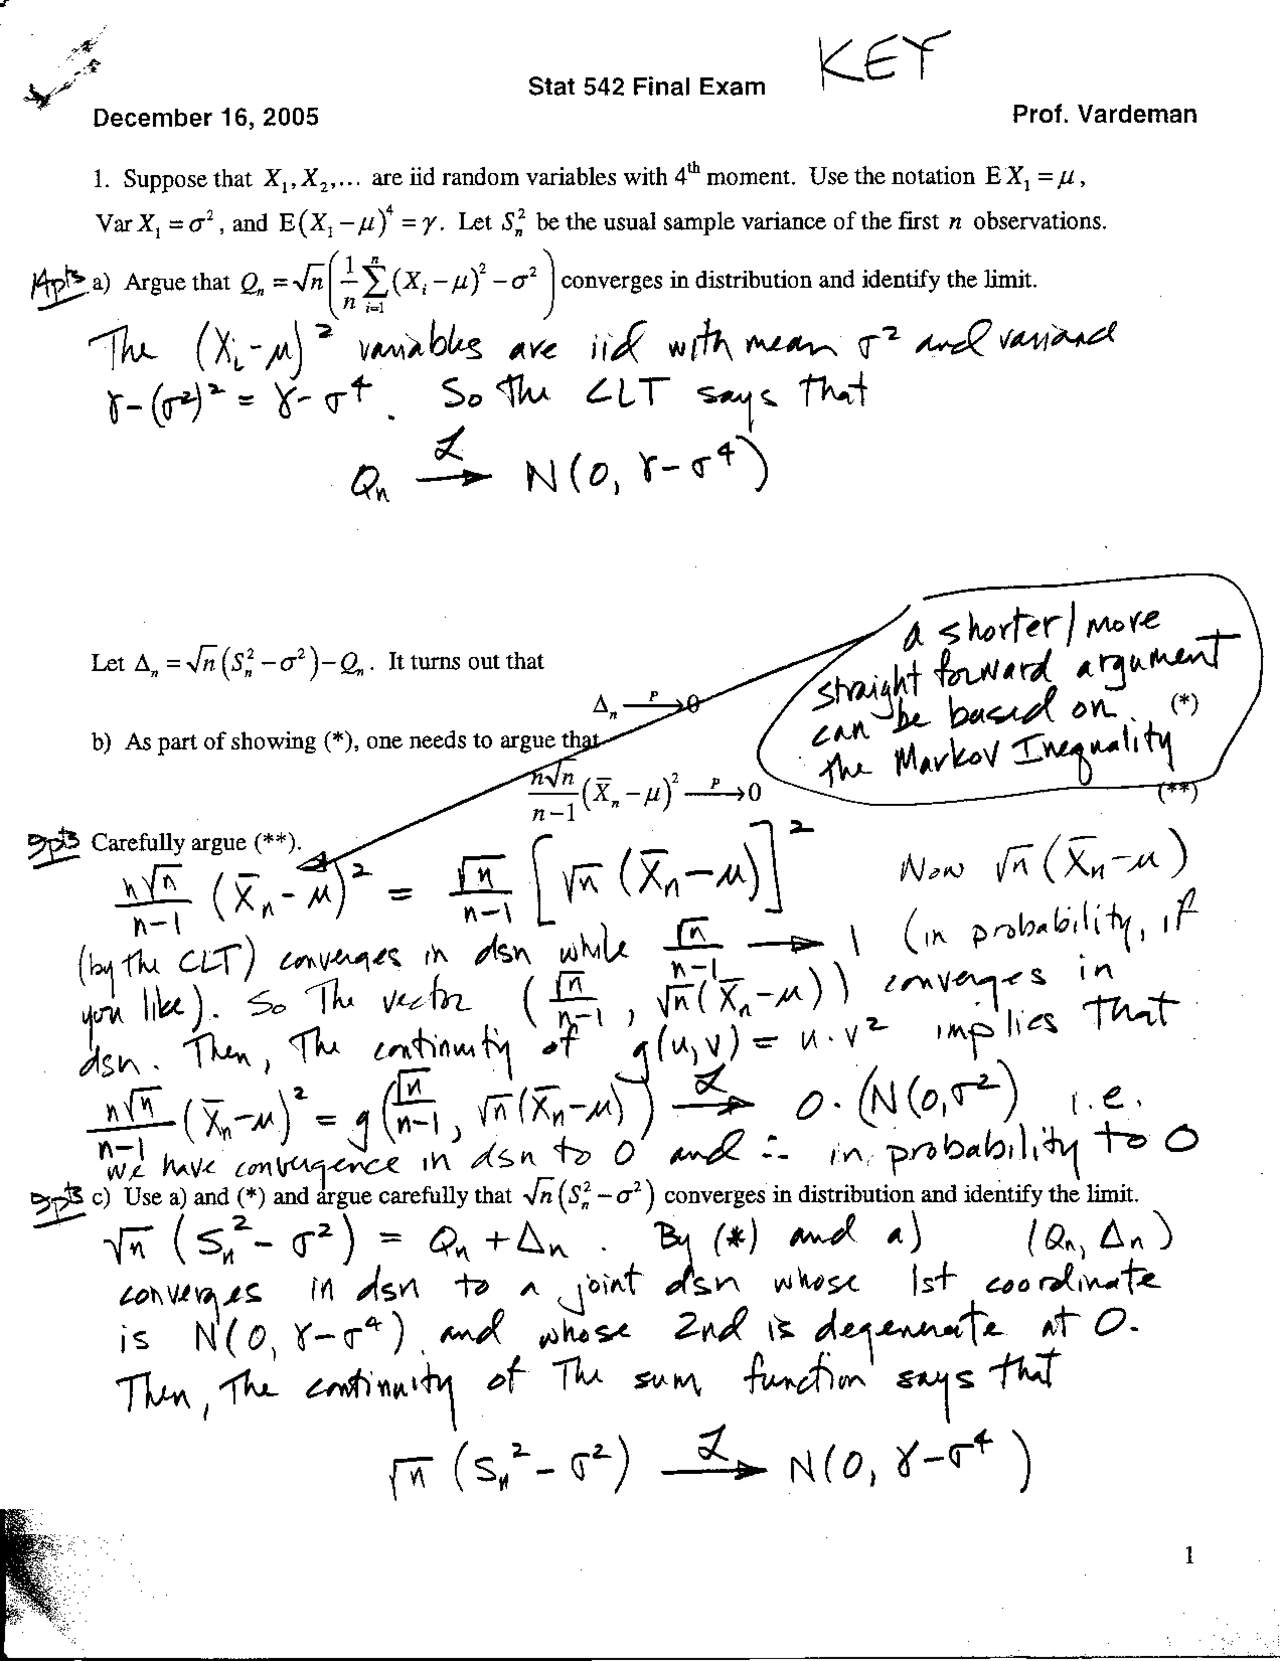 KEY
Stat 542 Final Exam
December 16, 2005 Prof. Vardeman
1. Suppose that X₁, X₂,... are iid random variables with 4th moment. Use the notation E X₁ = μ,
Var X₁ = σ², and E(X₁ − μ)⁴ = γ. Let Sₙ² be the usual sample variance of the first n observations.
14pts a) Argue that Qₙ = √n( 1/n ∑ᵢ₌₁ⁿ (Xᵢ − μ)² − σ² ) converges in distribution and identify the limit.
The (Xᵢ-μ)² variables are iid with mean σ² and variance
γ-(σ²)² = γ-σ⁴. So the CLT says that
Qₙ →ℒ N(0, γ-σ⁴)
a shorter/more
straight forward argument
can be based on
the Markov Inequality
Let Δₙ = √n(Sₙ² − σ²) − Qₙ. It turns out that
Δₙ —P→ 0 (*)
b) As part of showing (*), one needs to argue that
n√n/(n−1) (X̄ₙ − μ)² —P→ 0 (**)
9pts Carefully argue (**).
n√n/(n-1) (X̄ₙ-μ)² = √n/(n-1) [√n (X̄ₙ-μ)]² Now √n (X̄ₙ-μ)
(by the CLT) converges in dsn while √n/(n-1) → 1 (in probability, if
you like). So the vector (√n/(n-1), √n(X̄ₙ-μ)) converges in
dsn. Then, the continuity of g(u,v) = u·v² implies that
n√n/(n-1) (X̄ₙ-μ)² = g(√n/(n-1), √n(X̄ₙ-μ)) →ℒ 0·(N(0,σ²) i.e.
we have convergence in dsn to 0 and ∴ in probability to 0
9pts c) Use a) and (*) and argue carefully that √n(Sₙ² − σ²) converges in distribution and identify the limit.
√n (Sₙ² - σ²) = Qₙ + Δₙ. By (*) and a) (Qₙ, Δₙ)
converges in dsn to a joint dsn whose 1st coordinate
is N(0, γ-σ⁴) and whose 2nd is degenerate at 0.
Then, the continuity of the sum function says that
√n (Sₙ² - σ²) →ℒ N(0, γ-σ⁴)
1